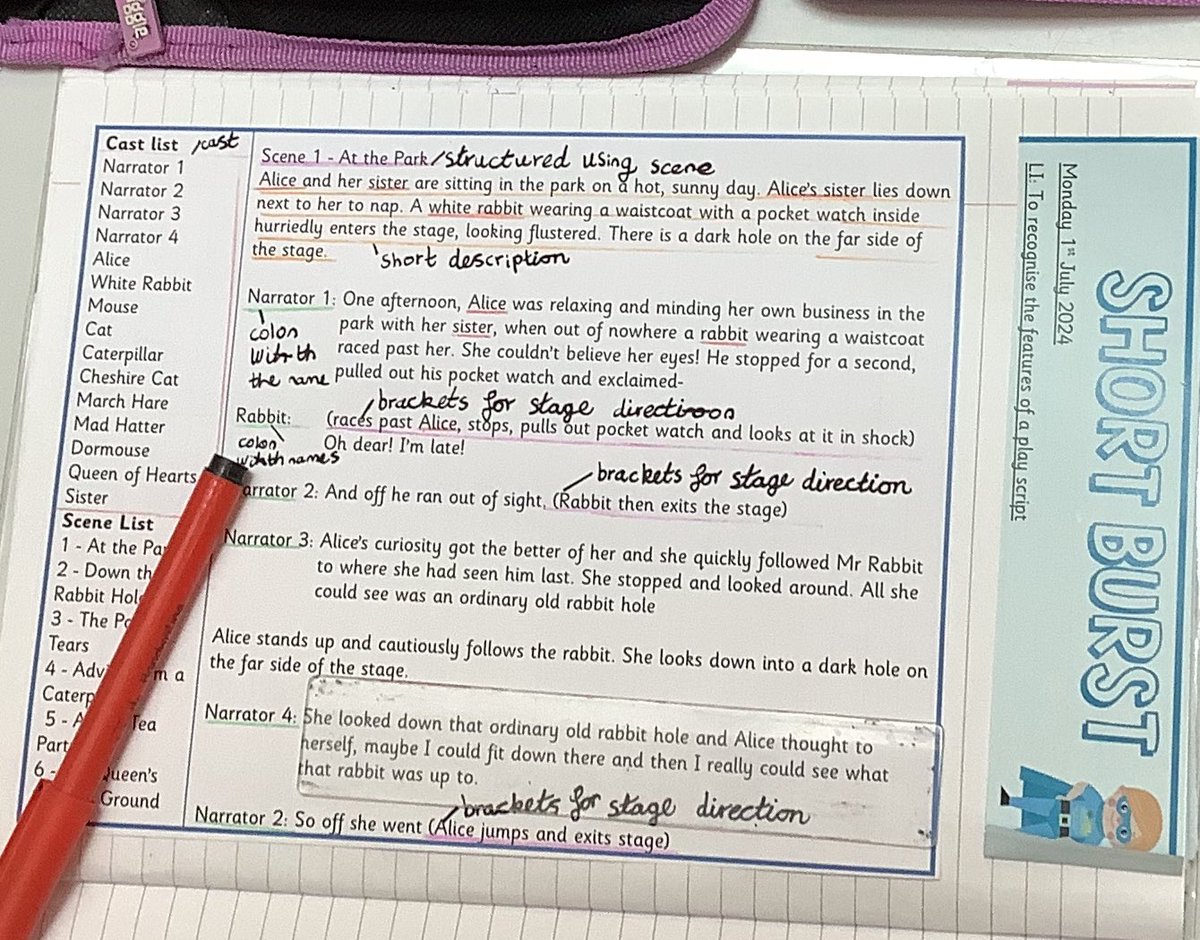 Cast list /cast
Narrator 1
Narrator 2
Narrator 3
Narrator 4
Alice
White Rabbit
Mouse
Cat
Caterpillar
Cheshire Cat
March Hare
Mad Hatter
Dormouse
Queen of Hearts
Sister
Scene List
1 - At the
2 - Down
Rabbit
3 - The
Tears
4 - a
5 - Tea
6 - Queen's
Ground
Scene 1 - At the Park/structured using scene
Alice and her sister are sitting in the park on a hot, sunny day. Alice's sister lies down
next to her to nap. A white rabbit wearing a waistcoat with a pocket watch inside
hurriedly enters the stage, looking flustered. There is a dark hole on the far side of
the stage.
short description
Narrator 1: One afternoon, Alice was relaxing and minding her own business in the
park with her sister, when out of nowhere a rabbit wearing a waistcoat
raced past her. She couldn't believe her eyes! He stopped for a second,
pulled out his pocket watch and exclaimed-
colon
the
brackets for stage
Rabbit: (races past Alice, stops, pulls out pocket watch and looks at it in shock)
Oh dear! I'm late!
colon
names
brackets for stage direction
2: And off he ran out of sight. (Rabbit then exits the stage)
Narrator 3: Alice's curiosity got the better of her and she quickly followed Mr Rabbit
to where she had seen him last. She stopped and looked around. All she
could see was an ordinary old rabbit hole
Alice stands up and cautiously follows the rabbit. She looks down into a dark hole on
the far side of the stage.
Narrator 4: She looked down that ordinary old rabbit hole and Alice thought to
herself, maybe I could fit down there and then I really could see what
that rabbit was up to.
brackets for stage direction
Narrator 2: So off she went (Alice jumps and exits stage)
Monday 1st July 2024
LI: To recognise the features of a play script
SHORT BURST